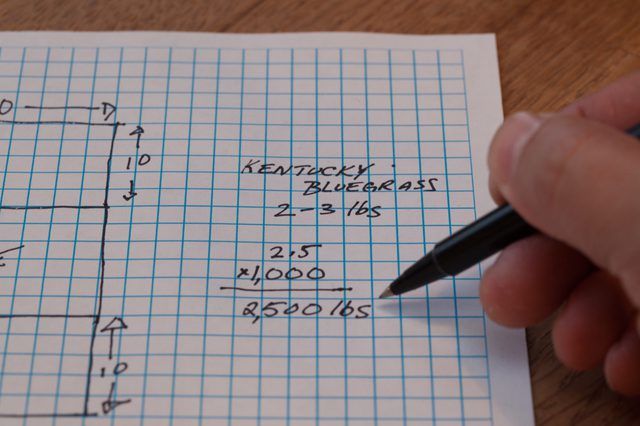 0
10
KENTUCKY
BLUEGRASS
2-3 lbs
2.5
×1,000
2,500 lbs
10